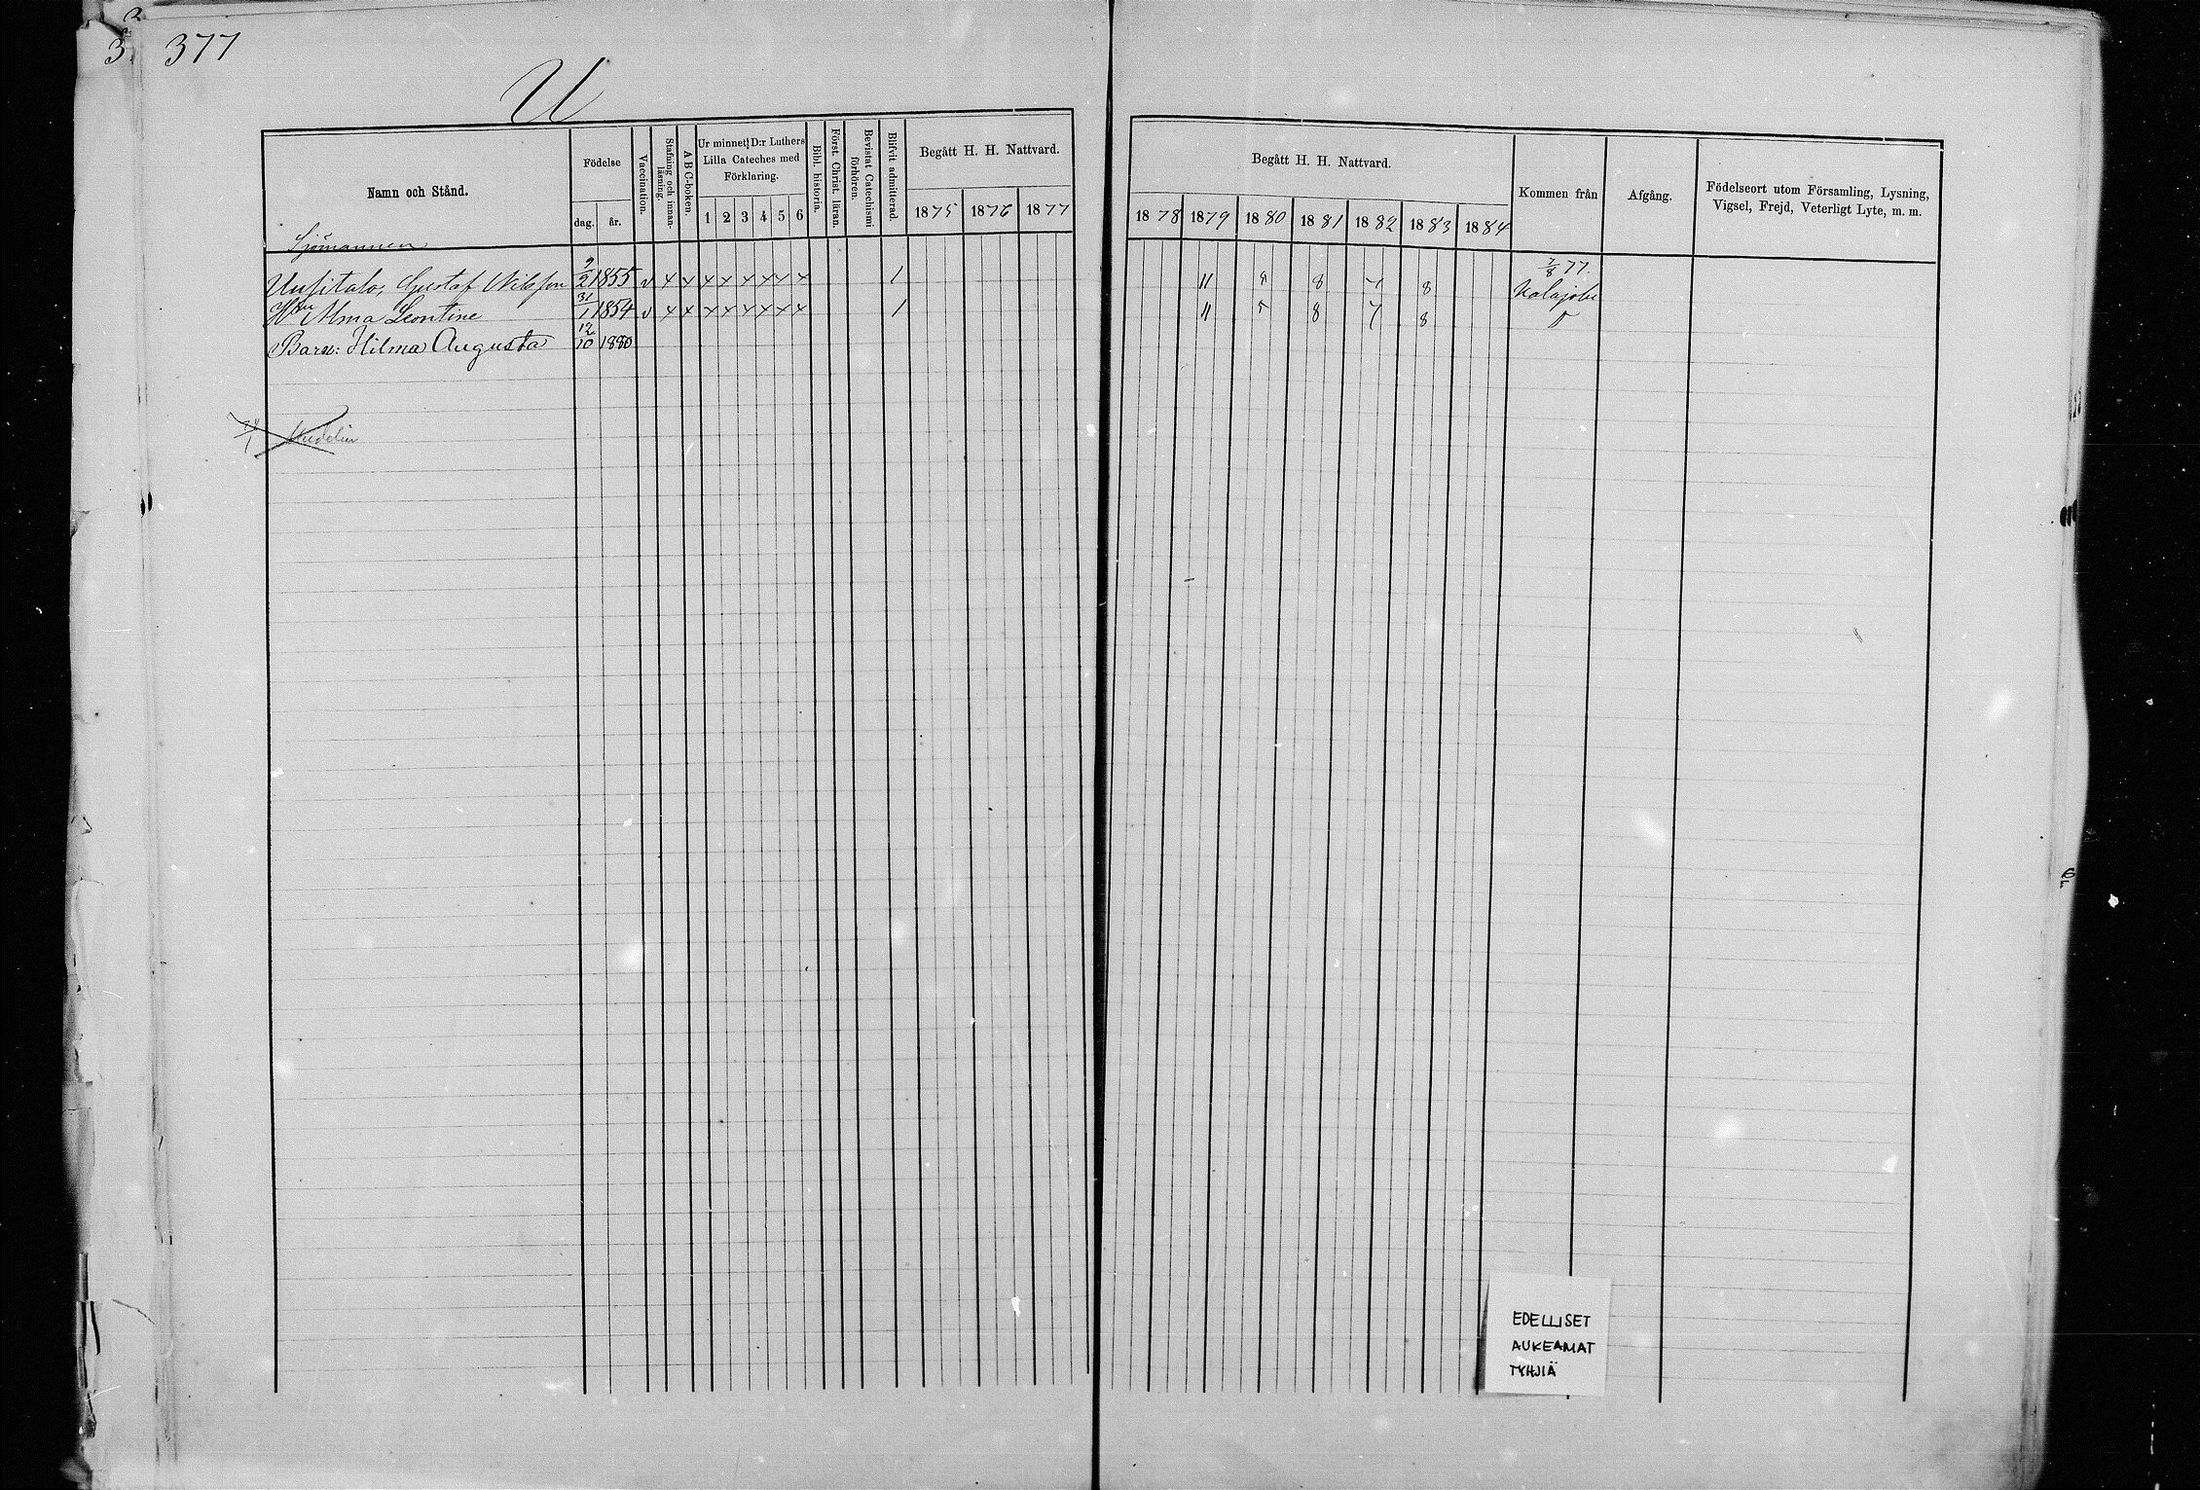 377
U
Namn och Stånd.
Födelse
dag.
år.
Vaccination.
Stafning och innan-
läsning.
A B C-boken.
Ur minnet D:r Luthers
Lilla Cateches med
Förklaring.
1 2 3 4 5 6
Bibl. historia.
Först. Christ. läran.
Bevistat Catechismi
förhören.
Blifvit admitterad.
Begått H. H. Nattvard.
1875 1876 1877
Begått H. H. Nattvard.
1878 1879 1880 1881 1882 1883 1884
Kommen från
Afgång.
Födelseort utom Församling, Lysning,
Vigsel, Frejd, Veterligt Lyte, m. m.
Sjömannen
7/8 77.
Uusitalo, Gustaf Nilsson 9/2 1855 v x x x x x x x x 1 11 8 8 7 8 Kalajoki
Hu Alma Leontine 31/1 1854 v x x x x x x x x 1 11 8 8 7 8 D
Barn: Hilma Augusta 12/10 1880
EDELLISET
AUKEAMAT
TYHJIÄ